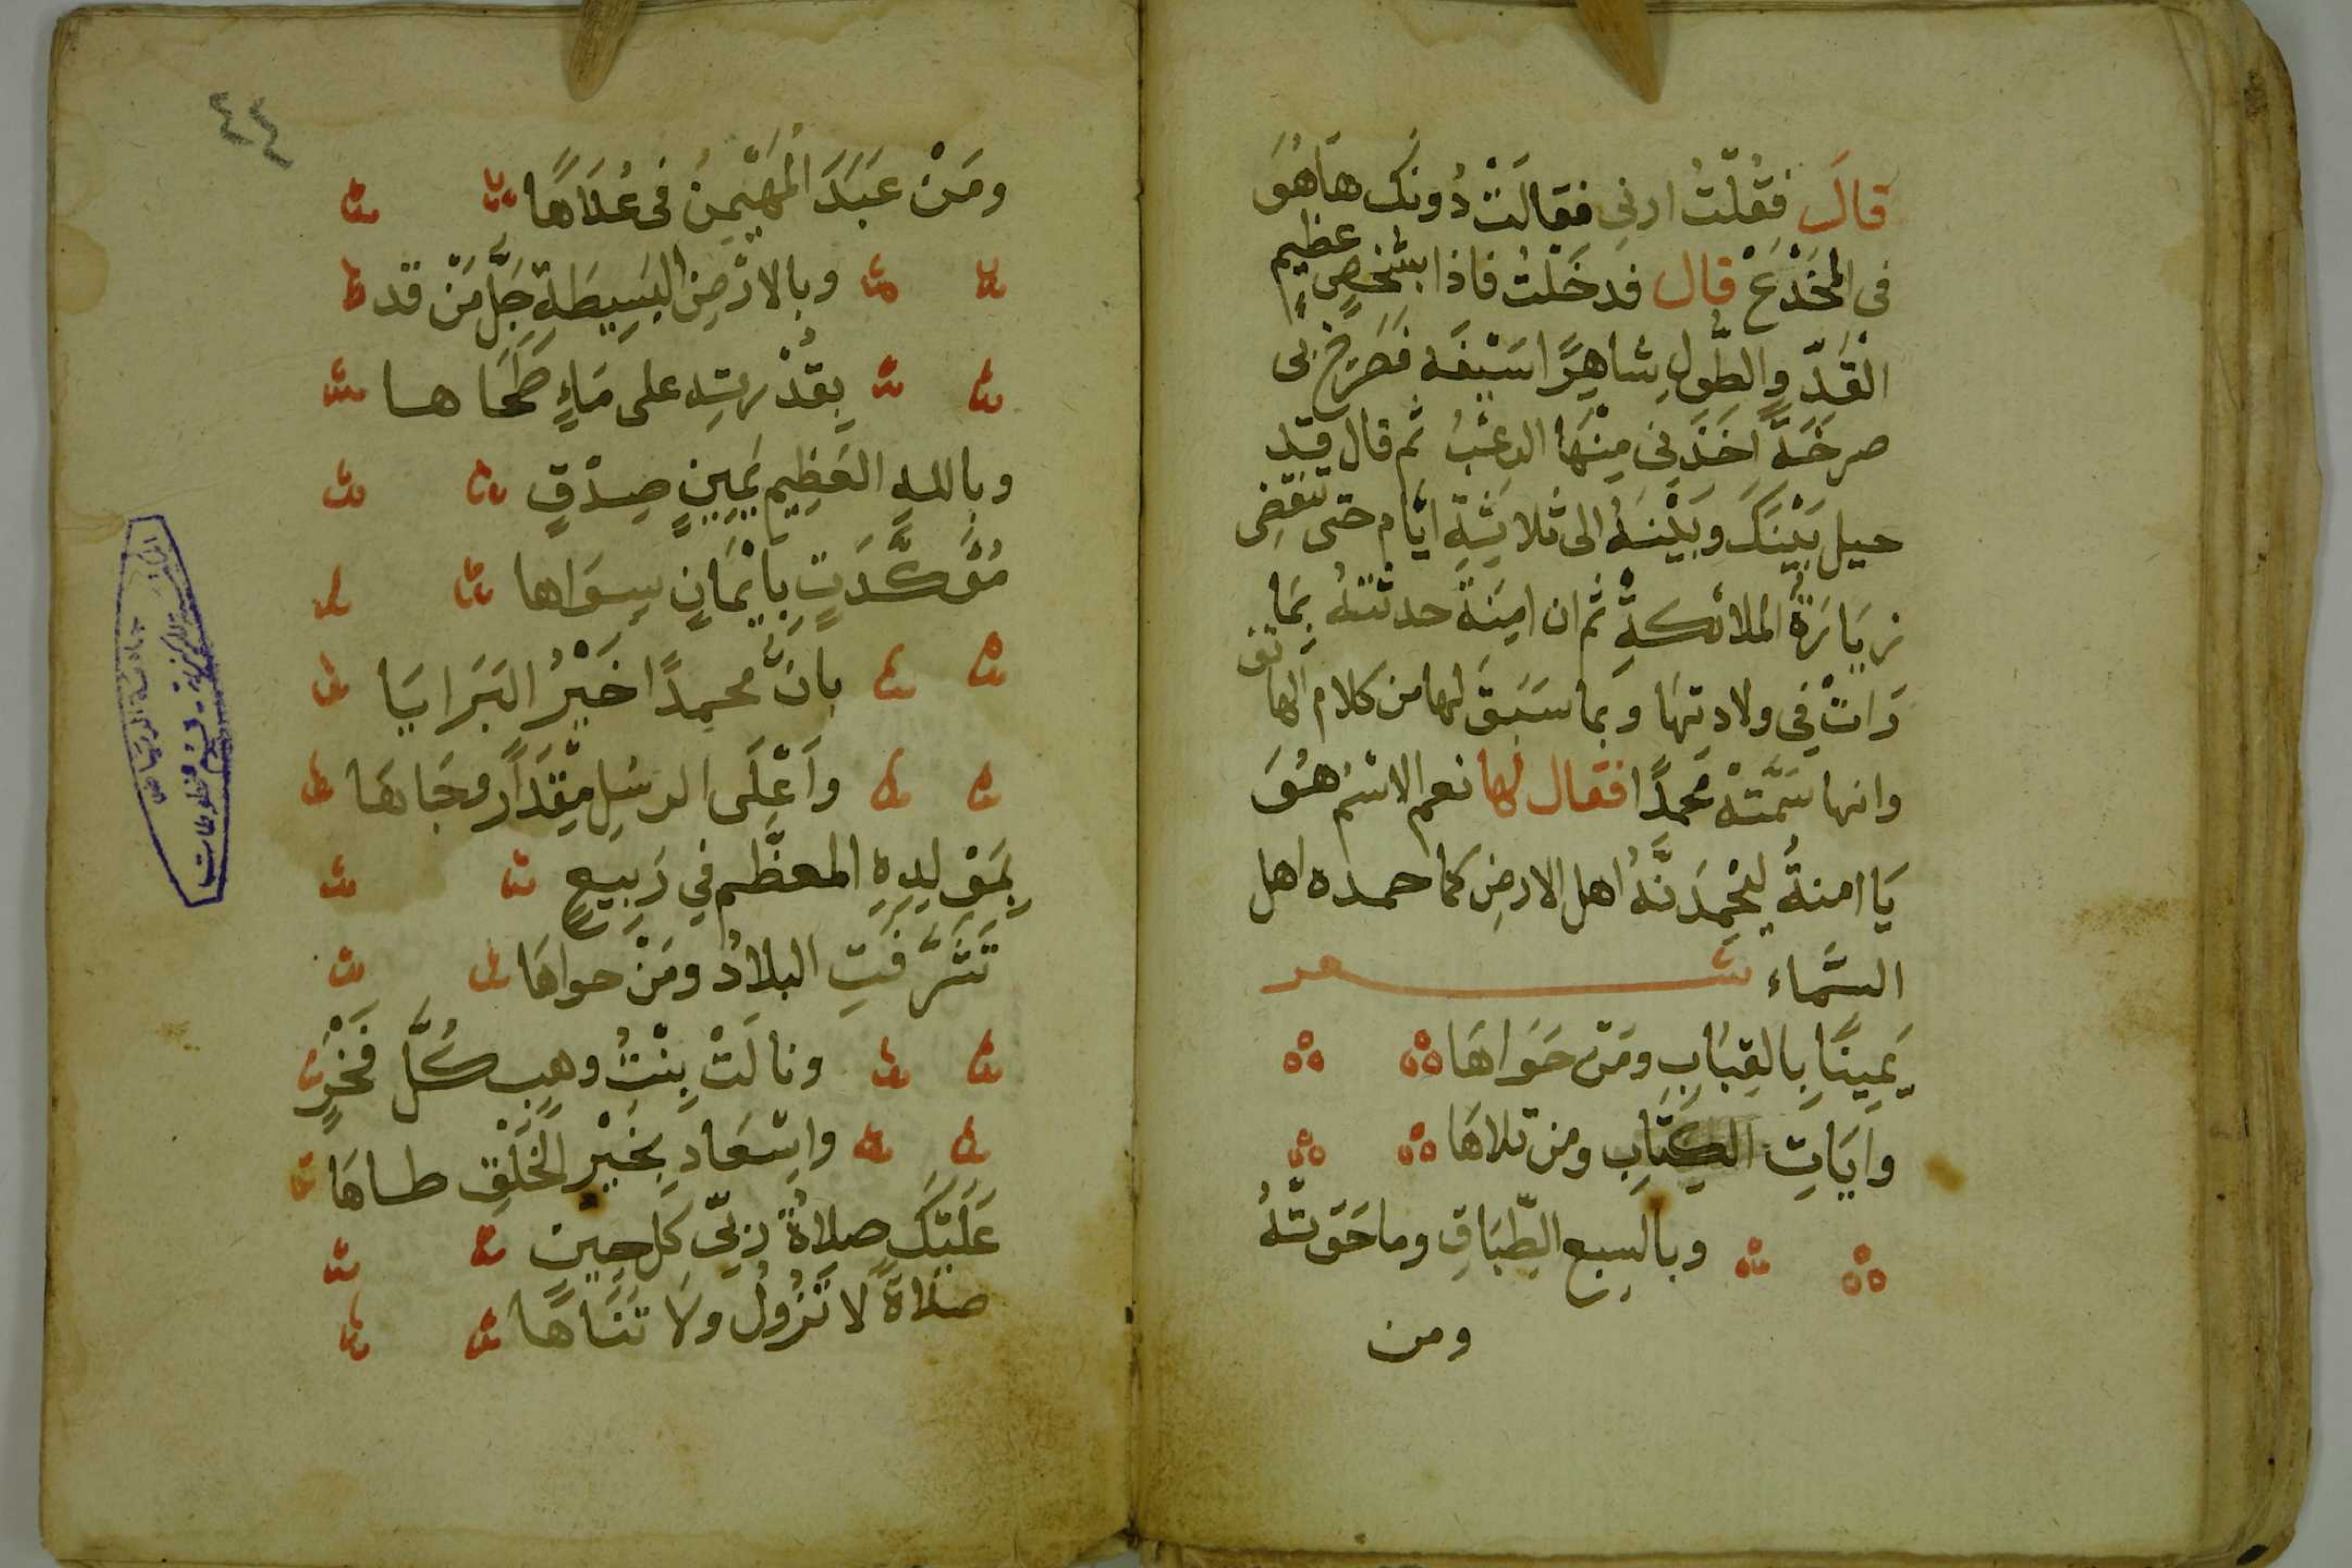 قالَ فقُلْتُ ارنى فقالَتْ دُونك هَاهُوَ
فى المخَدْعْ قال فدخَلْتُ فاذا بشَخصٍ عظيم
القَدِّ والطُّولِ شاهِرًا سَيْفَه فصَرَخ بى
صرخَةً اخَذَنِى مِنْهَا الرعْبُ ثم قال قد
حيل بَيْنَكَ وبَيْنَهُ الى ثلاثَةِ ايَّام حتى تنقضِى
زيَارَةُ الملائكةِ ثم ان امِنَة حدثتْهُ بِمَا
رَاتْ فِي ولادتِهَا وبما سَبَقَ لها من كلام الهاتف
وانها سَمَّتْهُ مُحمدًا فقال لها نعم الاسْمُ هُوَ
يَا امنةُ ليَحْمِدَنَّهُ اهل الارضِ كما حمده اهل
السَّماء شعر
يَمِينًا بِالقِبَابِ ومَنْ حَوَاهَا
وايَاتِ الكِتَابِ ومن تلاهَا
وبالسبع الطِّبَاقِ وما حَوَتْهُ
ومن
٤٤
ومَنْ عَبَدَ المُهَيْمِنُ فى عُلَاهَا
وبالارْضِ البَسِيطَةِ جَلَّ مَنْ قد
بِقُدْرتِه على مَاءٍ طَحَاها
وبالله العَظِيم يَمِينِ صِدْقٍ
مُؤكَّدَتٍ بِايْمَانٍ سِوَاها
بانَّ محمدًا خَيْرُ البَرَايَا
وَاَعْلَى الرسْلِ مِقْدَارًا وجَاهَا
بِمَوْلِدِهِ المعظَّم فِي رَبِيعٍ
تَشَرَّفَتِ البلادُ ومَنْ حواهَا
ونالَتْ بِنْتُ وهبٍ كُلَّ فَخْرٍ
واسْعَادٍ بِخَيْرِ الخَلْقِ طاهَا
عَلَيْكَ صلاةُ رَبِّى كل حِينٍ
صَلَاةً لا تَزُولُ ولا تَنَاهَا